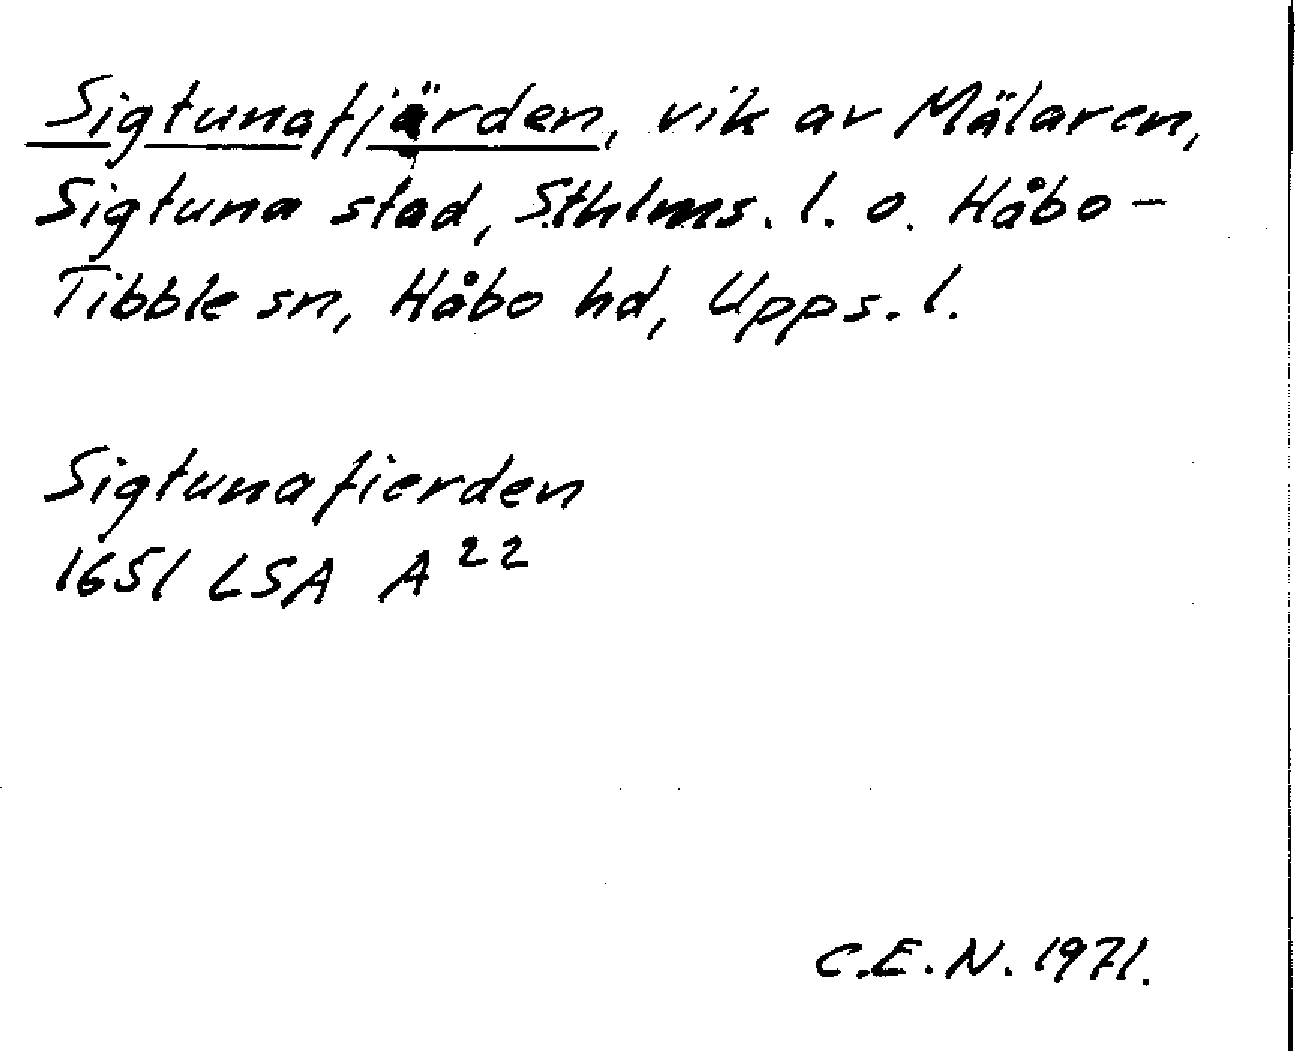 Sigtunafjärden, vik av Mälaren,
Sigtuna stad, Sthlms. l. o. Håbo-
Tibble sn, Håbo hd, Upps. l.
Sigtunafierden
1651 LSA A 22
C.E.N. 1971.